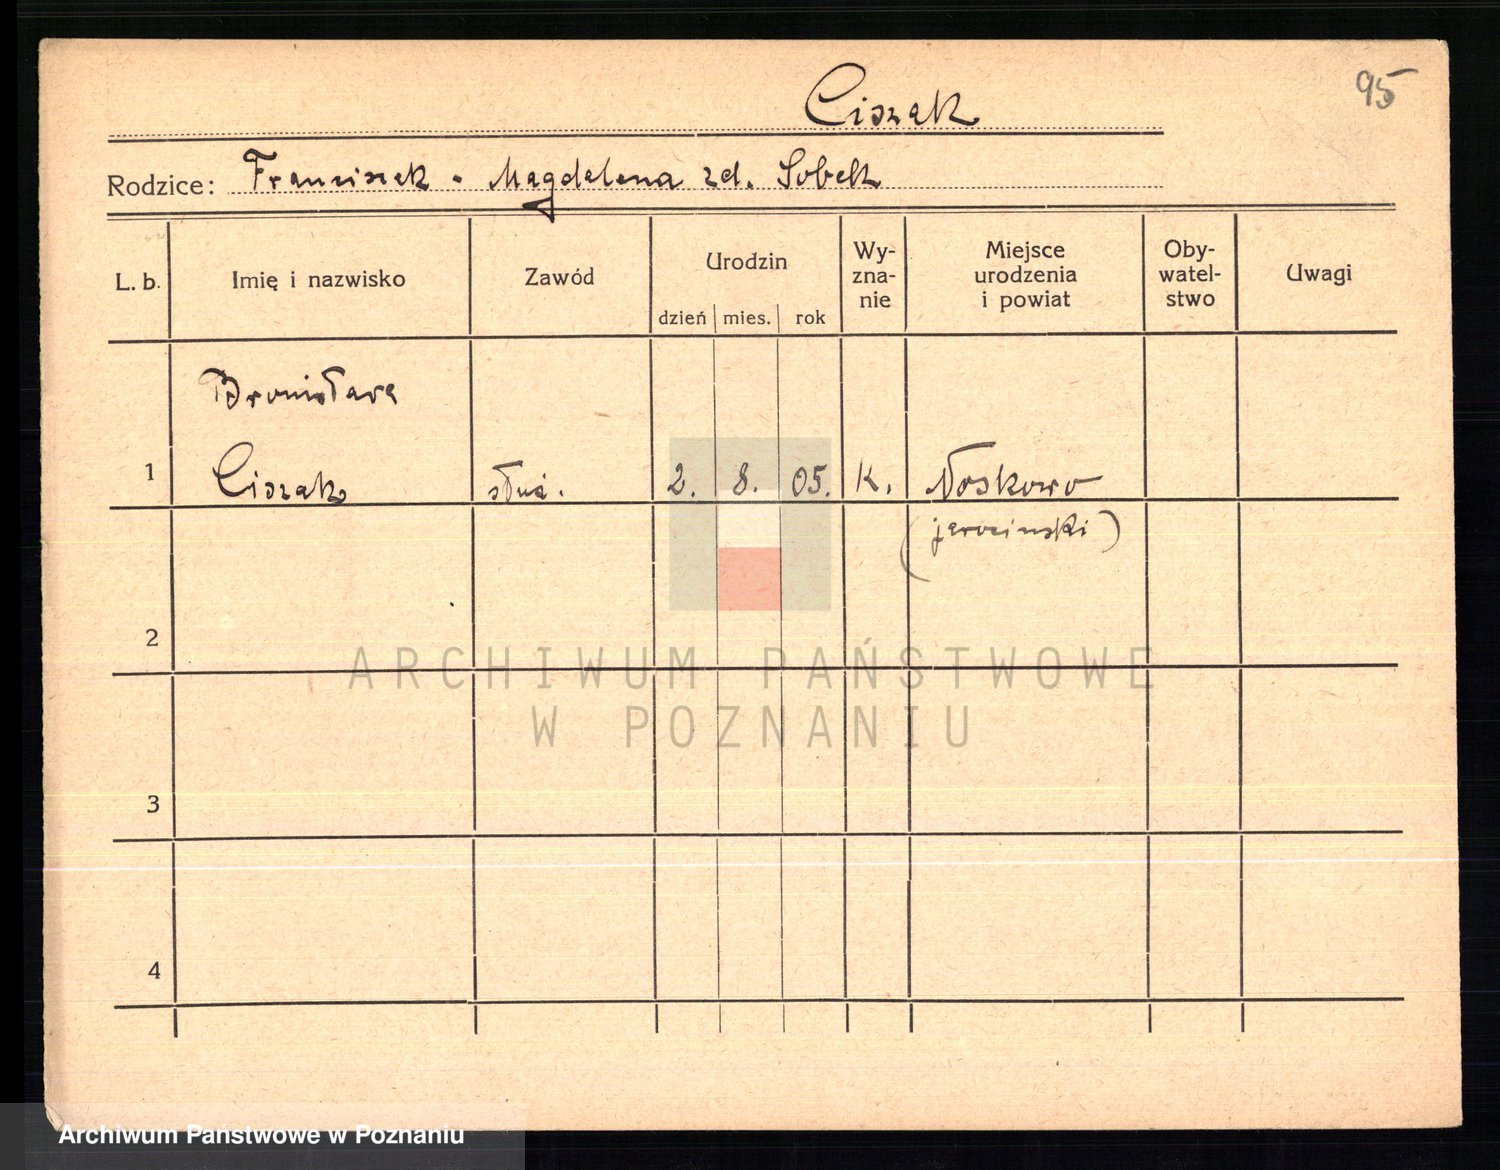 95
Ciszak
Rodzice: Franciszek - Magdalena zd. Sobek
L. b.
Imię i nazwisko
Zawód
Urodzin
dzień mies. rok
Wy-
zna-
nie
Miejsce
urodzenia
i powiat
Oby-
watel-
stwo
Uwagi
Bronisława
1 Ciszak służ. 2. 8. 05. K. Noskowo
(jarociński)
2
ARCHIWUM PAŃSTWOWE
W POZNANIU
3
4
Archiwum Państwowe w Poznaniu